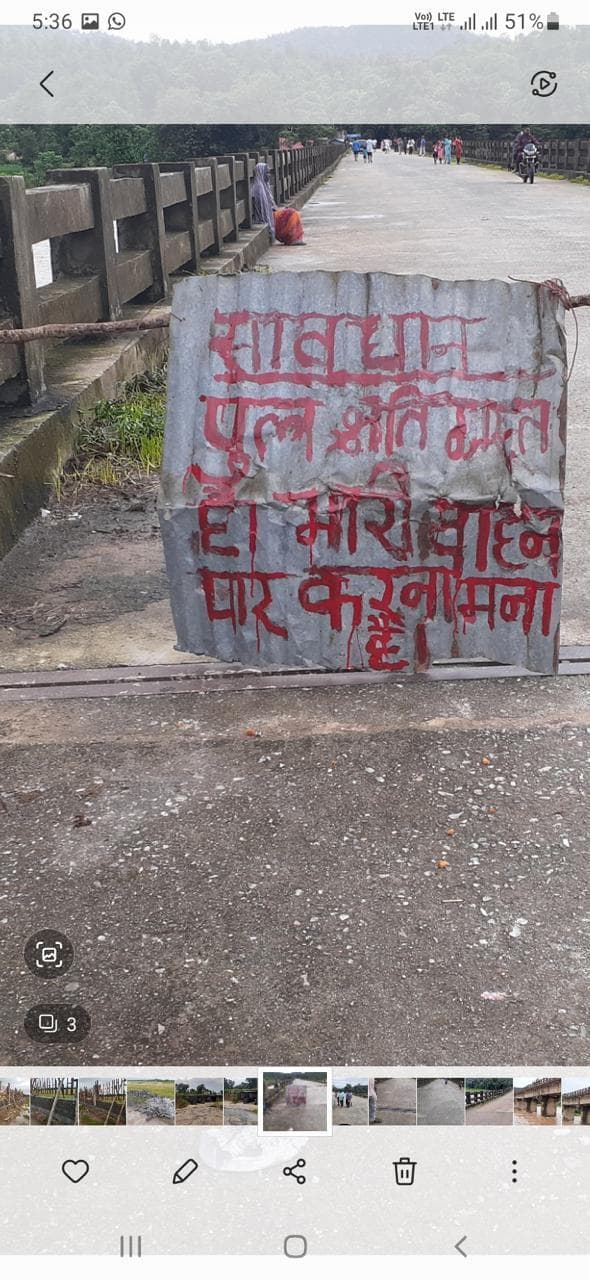 5:36
Vo)) LTE
LTE1
51%
सावधान
पुल क्षति ग्रस्त
है। भारी वाहन
पार करना मना
है।
3